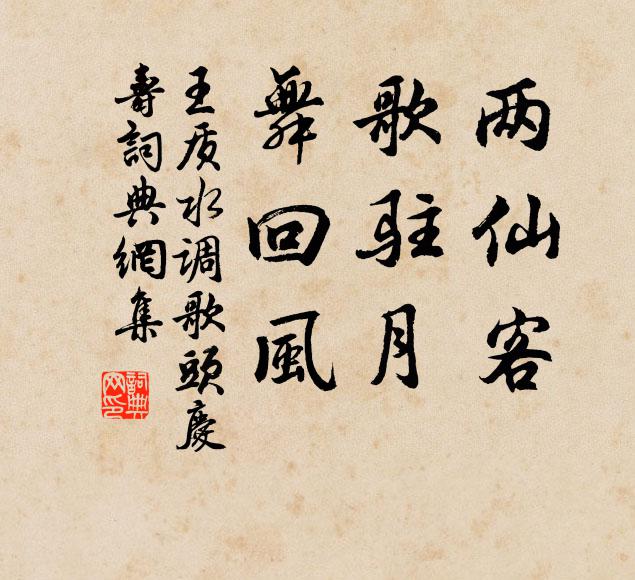 两仙客
歌驻月
舞回風
王质水调歌頭慶
壽詞典網集
詞典
网印